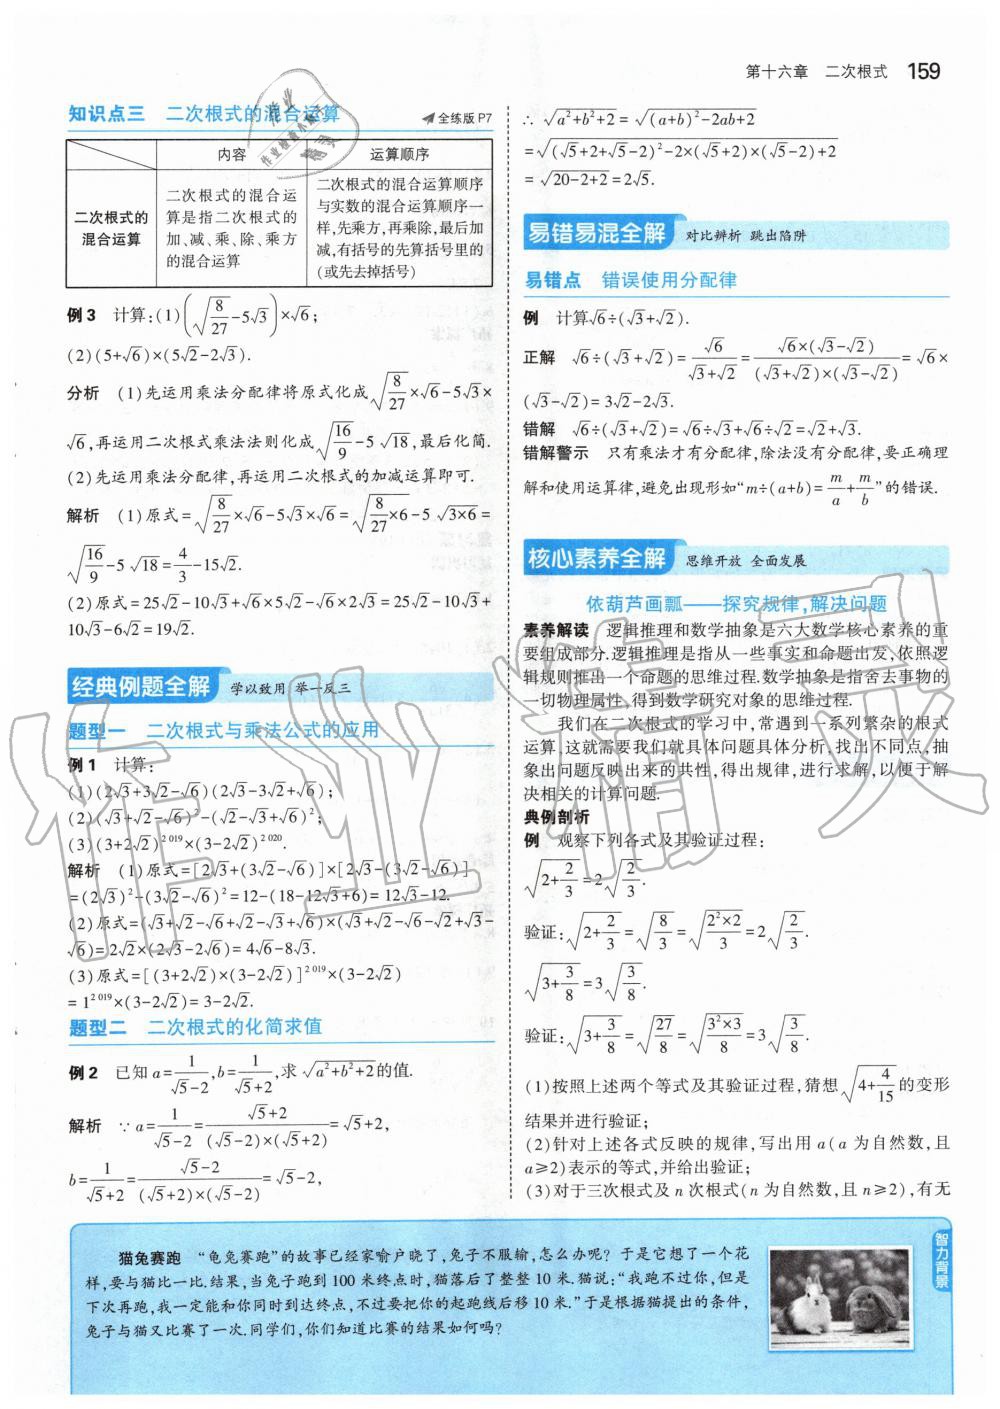 第十六章 二次根式 159
知识点三 二次根式的混合运算 全练版 P7
内容 运算顺序
二次根式的混合运算
二次根式的混合运算是指二次根式的加、减、乘、除、乘方的混合运算
二次根式的混合运算顺序与实数的混合运算顺序一样,先乘方,再乘除,最后加减,有括号的先算括号里的(或先去掉括号)
例 3 计算:(1)(√(8/27)-5√3)×√6;
(2)(5+√6)×(5√2-2√3).
分析 (1)先运用乘法分配律将原式化成√(8/27)×√6-5√3×
√6,再运用二次根式乘法法则化成√(16/9)-5√18,最后化简.
(2)先运用乘法分配律,再运用二次根式的加减运算即可.
解析 (1)原式=√(8/27)×√6-5√3×√6=√(8/27×6)-5√(3×6)=
√(16/9)-5√18=4/3-15√2.
(2)原式=25√2-10√3+√6×5√2-√6×2√3=25√2-10√3+
10√3-6√2=19√2.
经典例题全解 学以致用 举一反三
题型一 二次根式与乘法公式的应用
例 1 计算:
(1)(2√3+3√2-√6)(2√3-3√2+√6);
(2)(√3+√2-√6)²-(√2-√3+√6)²;
(3)(3+2√2)²⁰¹⁹×(3-2√2)²⁰²⁰.
解析 (1)原式=[2√3+(3√2-√6)]×[2√3-(3√2-√6)]
=(2√3)²-(3√2-√6)²=12-(18-12√3+6)=12√3-12.
(2)原式=(√3+√2-√6+√2-√3+√6)×(√3+√2-√6-√2+√3-
√6)=2√2×(2√3-2√6)=4√6-8√3.
(3)原式=[(3+2√2)×(3-2√2)]²⁰¹⁹×(3-2√2)
=1²⁰¹⁹×(3-2√2)=3-2√2.
题型二 二次根式的化简求值
例 2 已知a=1/(√5-2),b=1/(√5+2),求√(a²+b²+2)的值.
解析 ∵a=1/(√5-2)=(√5+2)/((√5-2)×(√5+2))=√5+2,
b=1/(√5+2)=(√5-2)/((√5+2)×(√5-2))=√5-2,
∴√(a²+b²+2)=√((a+b)²-2ab+2)
=√((√5+2+√5-2)²-2×(√5+2)×(√5-2)+2)
=√(20-2+2)=2√5.
易错易混全解 对比辨析 跳出陷阱
易错点 错误使用分配律
例 计算√6÷(√3+√2).
正解 √6÷(√3+√2)=√6/(√3+√2)=√6×(√3-√2)/((√3+√2)×(√3-√2))=√6×
(√3-√2)=3√2-2√3.
错解 √6÷(√3+√2)=√6÷√3+√6÷√2=√2+√3.
错解警示 只有乘法才有分配律,除法没有分配律,要正确理
解和使用运算律,避免出现形如“m÷(a+b)=m/a+m/b”的错误.
核心素养全解 思维开放 全面发展
依葫芦画瓢——探究规律,解决问题
素养解读 逻辑推理和数学抽象是六大数学核心素养的重
要组成部分.逻辑推理是指从一些事实和命题出发,依照逻
辑规则推出一个命题的思维过程.数学抽象是指舍去事物的
一切物理属性,得到数学研究对象的思维过程.
我们在二次根式的学习中,常遇到一系列繁杂的根式
运算,这就需要我们就具体问题具体分析,找出不同点,抽
象出问题反映出来的共性,得出规律,进行求解,以便于解
决相关的计算问题.
典例剖析
例 观察下列各式及其验证过程:
√(2+2/3)=2√(2/3).
验证:√(2+2/3)=√(8/3)=√(2²×2/3)=2√(2/3).
√(3+3/8)=3√(3/8).
验证:√(3+3/8)=√(27/8)=√(3²×3/8)=3√(3/8).
(1)按照上述两个等式及其验证过程,猜想√(4+4/15)的变形
结果并进行验证;
(2)针对上述各式反映的规律,写出用a(a为自然数,且
a≥2)表示的等式,并给出验证;
(3)对于三次根式及n次根式(n为自然数,且n≥2),有无
猫兔赛跑 “龟兔赛跑”的故事已经家喻户晓了,兔子不服输,怎么办呢?于是它想了一个花
样,要与猫比一比.结果,当兔子跑到100米终点时,猫落后了整整10米.猫说:“我跑不过你,但是
下次再跑,我一定能和你同时到达终点,不过要把你的起跑线后移10米.”于是根据猫提出的条件,
兔子与猫又比赛了一次.同学们,你们知道比赛的结果如何吗?
智力背景
作业精灵